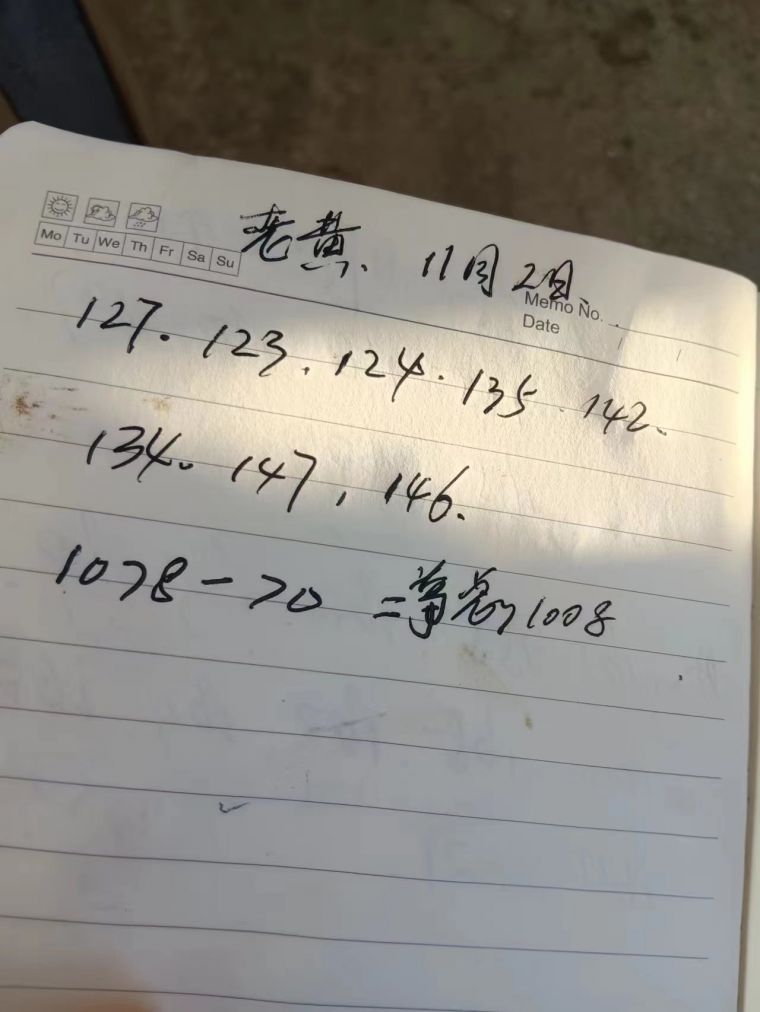 Mo Tu We Th Fr Sa Su
老黄、11月2日
Memo No.
Date
127. 123. 124. 135. 142.
134. 147, 146.
1078-70 =净 1008